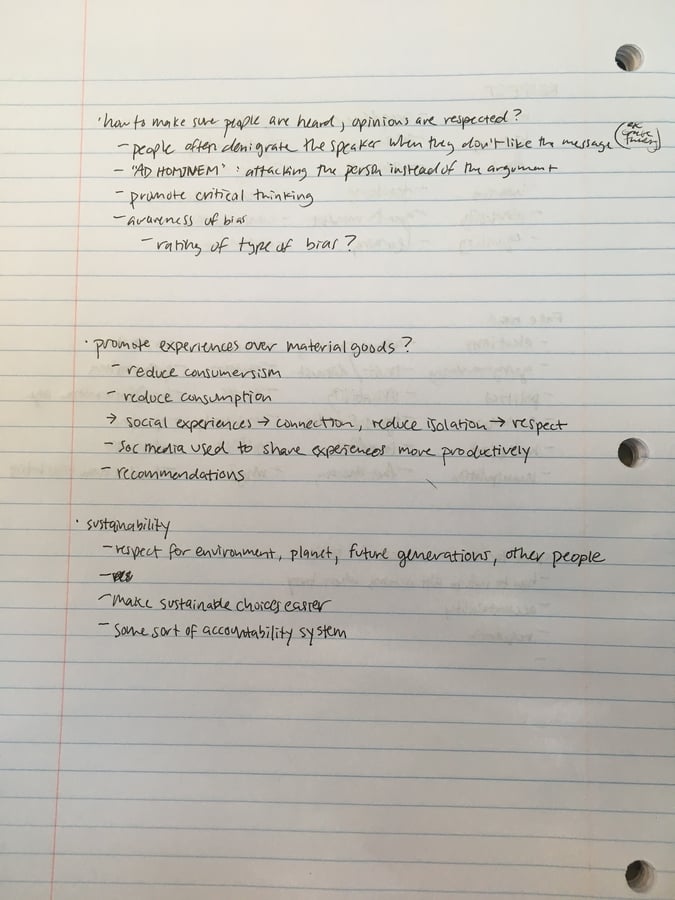 · how to make sure people are heard, opinions are respected?
- people often denigrate the speaker when they don't like the message
- "AD HOMINEM" : attacking the person instead of the argument
- promote critical thinking
- awareness of bias
- rating of type of bias?
· promote experiences over material goods?
- reduce consumersism
- reduce consumption
→ social experiences → connection, reduce isolation → respect
- soc media used to share experiences more productively
- recommendations
· sustainability
- respect for environment, planet, future generations, other people
- make sustainable choices easier
- some sort of accountability system